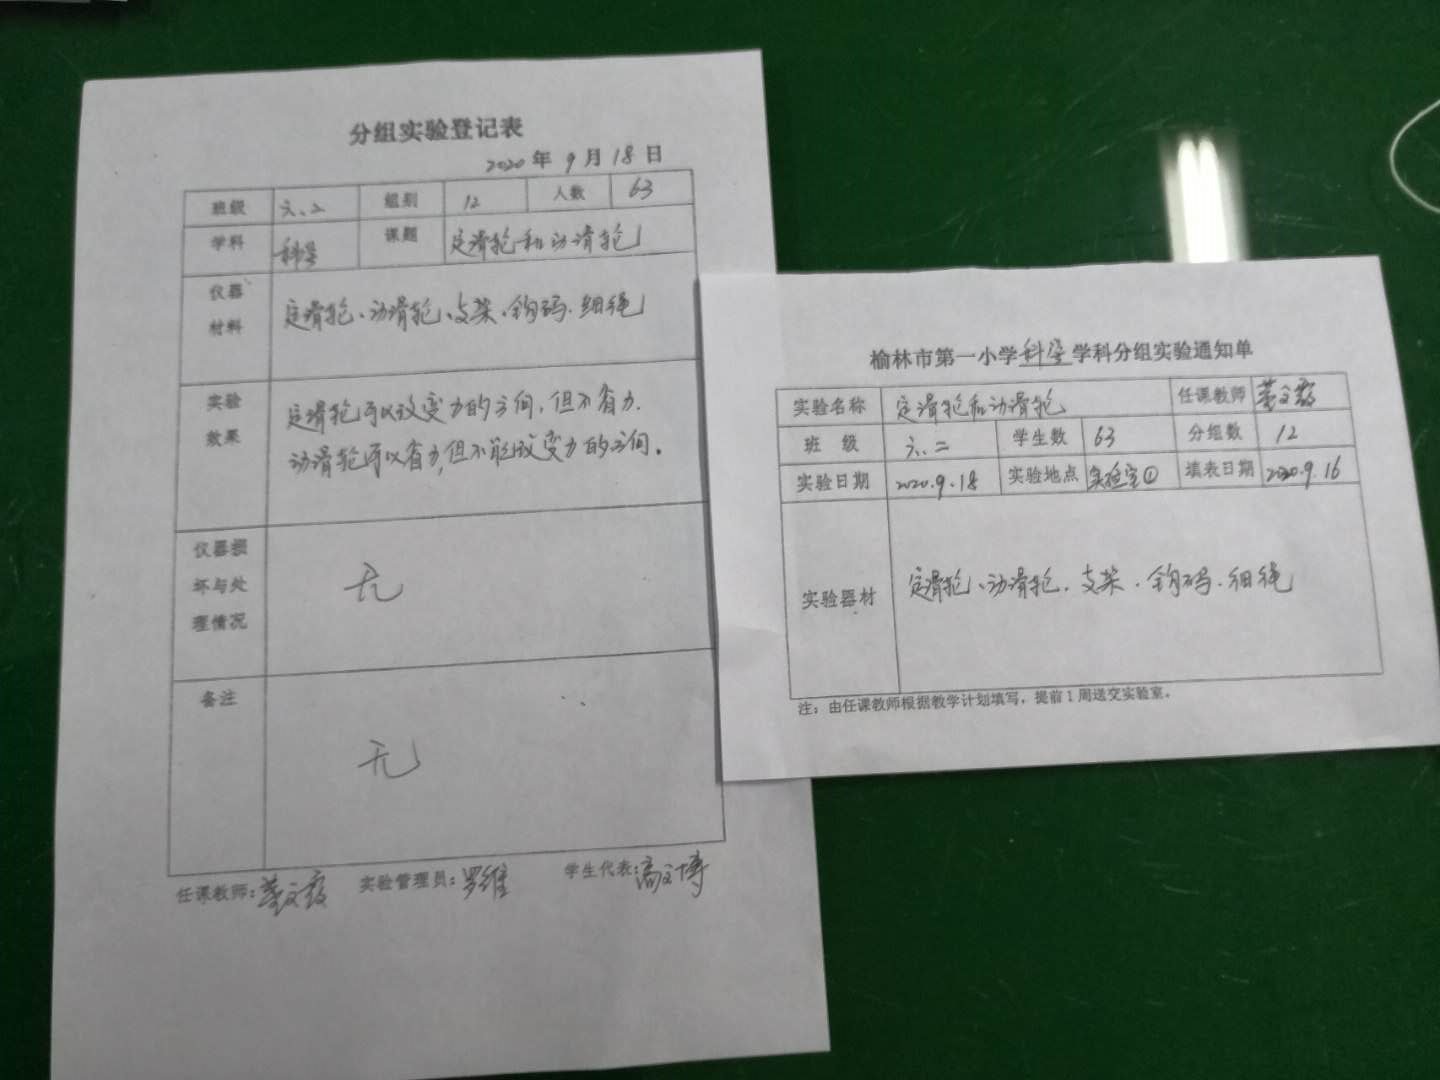 分组实验登记表
2020年9月18日
班级 六、二 组别 12 人数 63
学科 科学 课题 定滑轮和动滑轮
仪器材料 定滑轮、动滑轮、支架、钩码、细绳
实验效果 定滑轮可以改变力的方向，但不省力.
动滑轮可以省力,但不能改变力的方向。
仪器损坏与处理情况 无
备注 无
任课教师： 实验管理员：罗维 学生代表：高文博
榆林市第一小学科学学科分组实验通知单
实验名称 定滑轮和动滑轮 任课教师
班级 六、二 学生数 63 分组数 12
实验日期 2020.9.18 实验地点 实验室① 填表日期 2020.9.16
实验器材 定滑轮、动滑轮、支架、钩码、细绳
注：由任课教师根据教学计划填写，提前1周送交实验室。